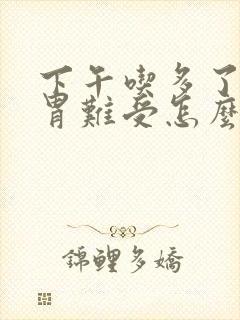 下午喫多了
胃難受怎麼
錦鯉多嬌